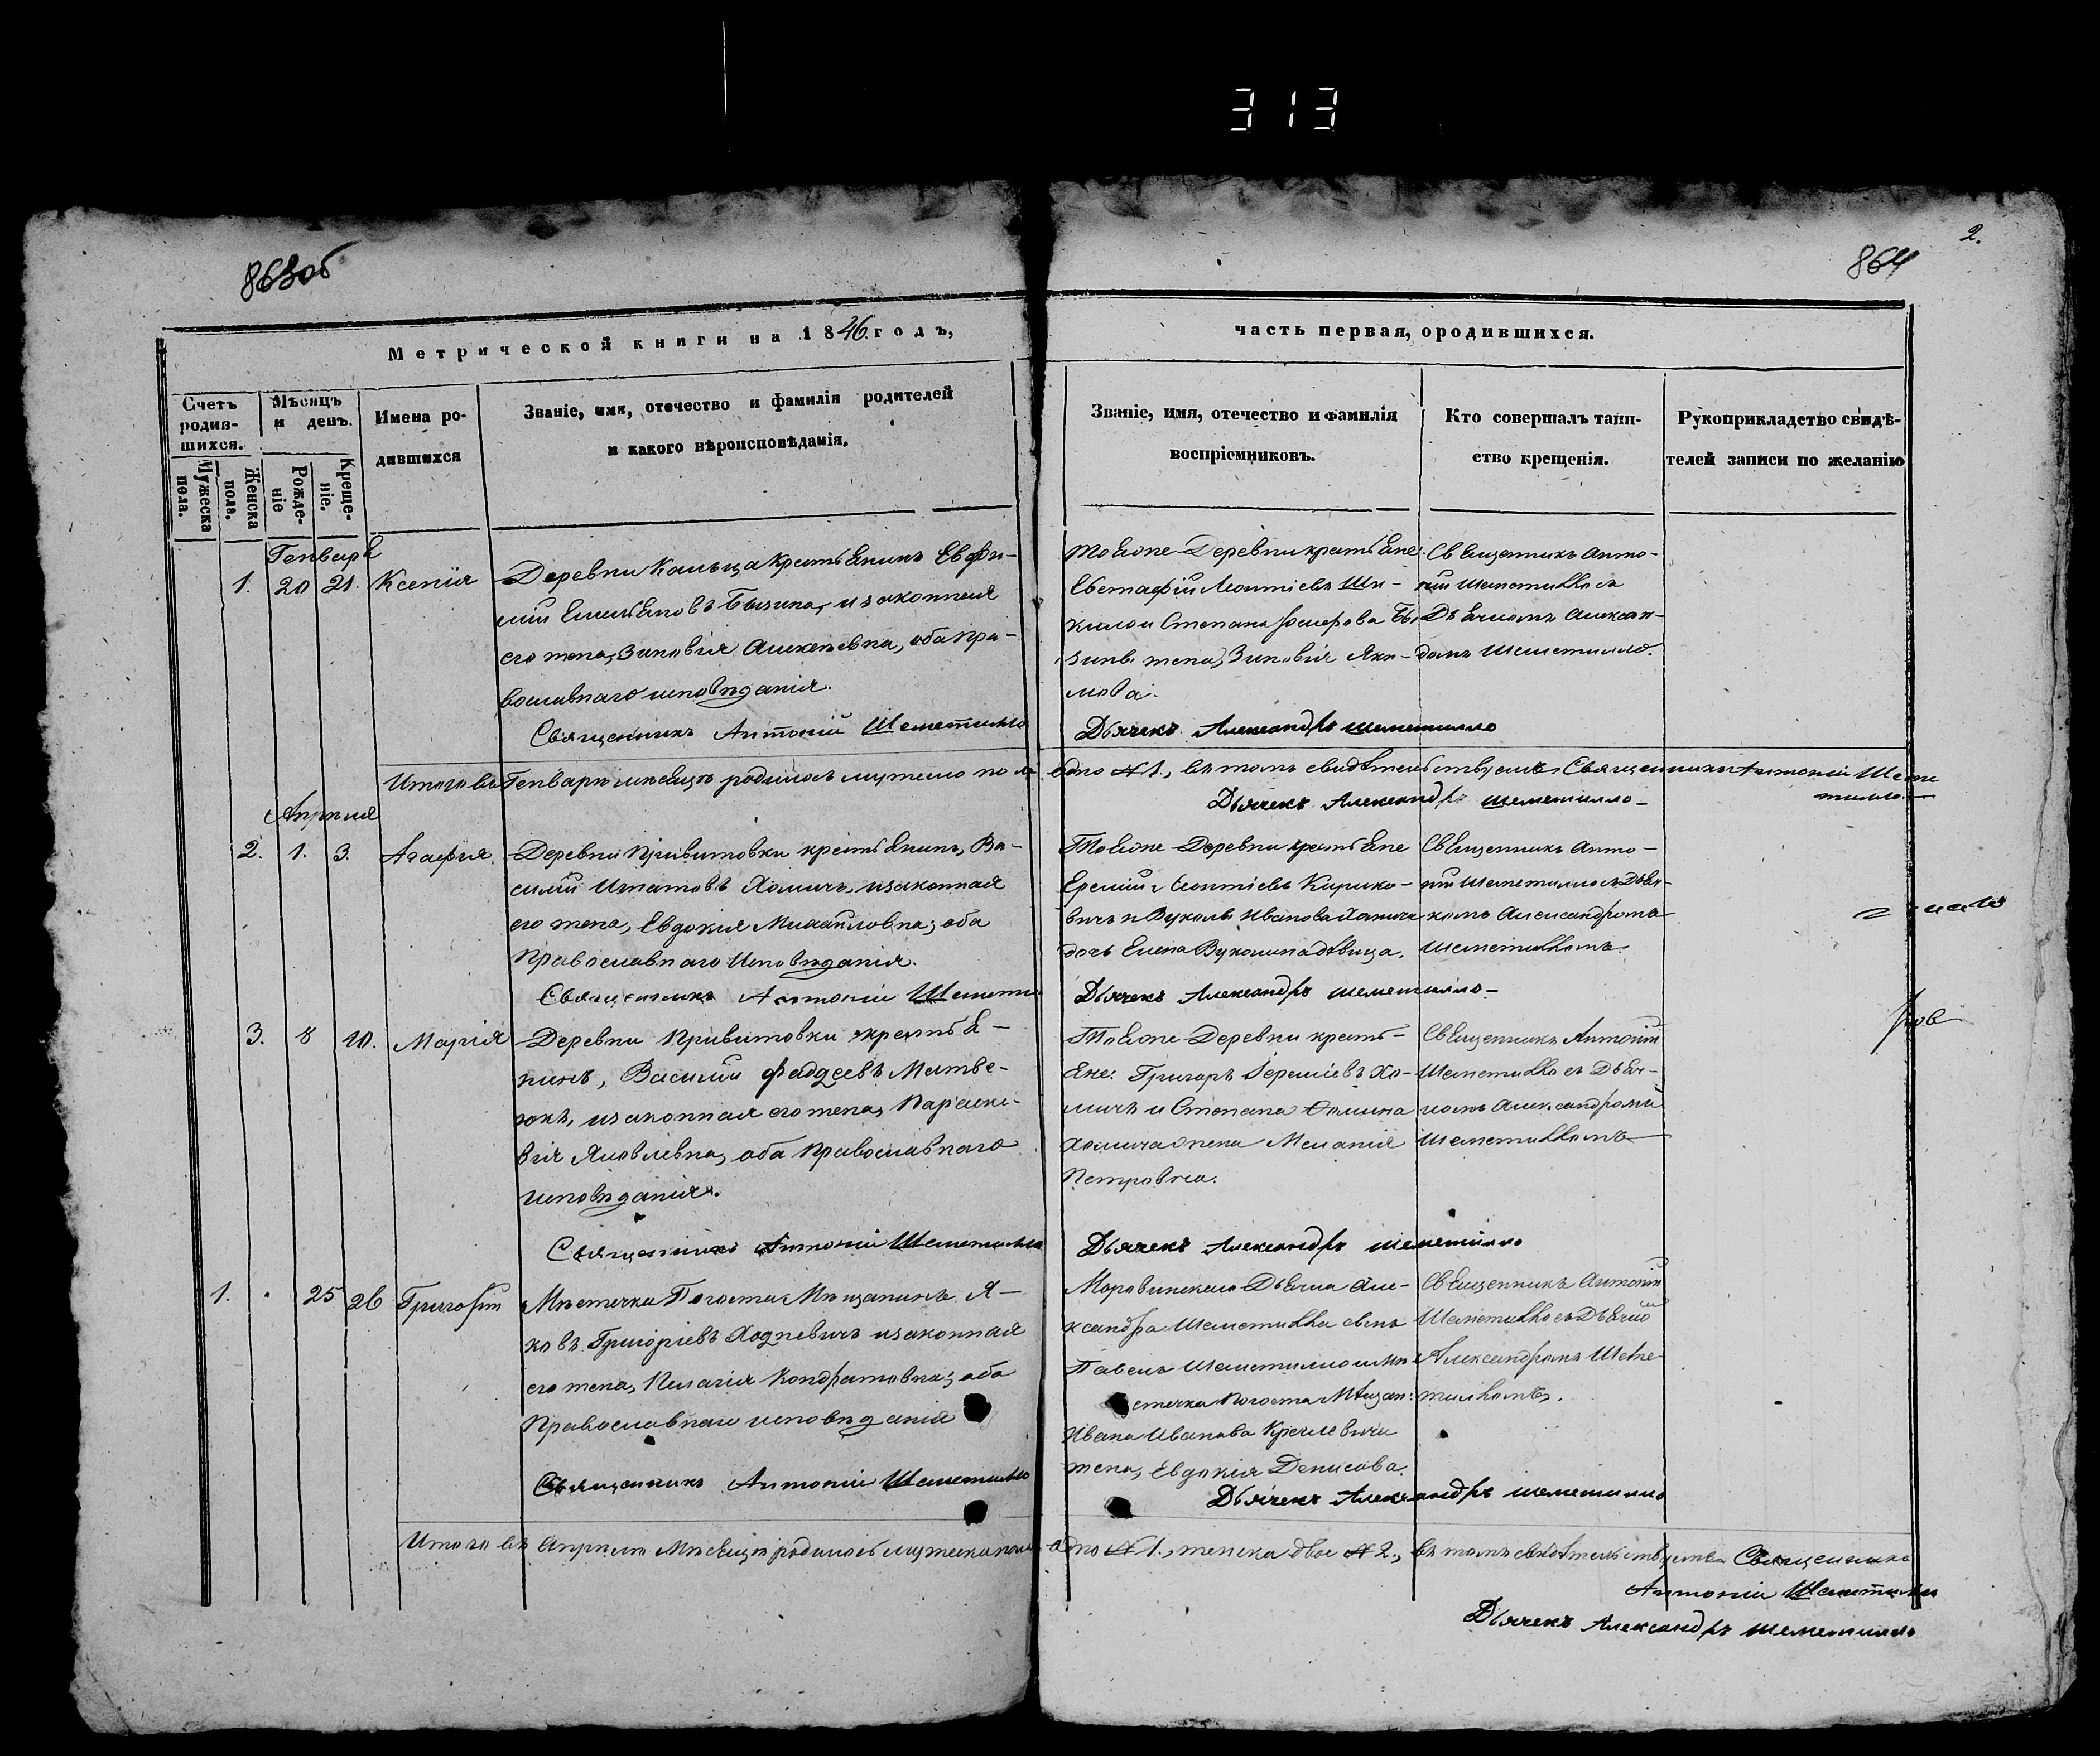 313
2.
863об
864
Метрической книги на 1846 годъ,
часть первая, ородившихся.
Счетъ родив-шихся.
Мужеска пола.
Женска пола.
Мѣсяцъ и день.
Рожде-ніе
Креще-ніе.
Имена ро-дившихся
Званіе, имя, отечество и фамилія родителей
и какого вѣроисповѣданія.
Званіе, имя, отечество и фамилія
воспріемниковъ.
Кто совершалъ таин-
ство крещенія.
Рукоприкладство свидѣ-
телей записи по желанію
Генваря
1. 20 21. Ксенія
Деревни Кальца Крестьянинъ Евфи-
мій Емельяновъ Бызина, изаконная
его жена, Зиновія Алексѣевна, оба пра-
вославнаго исповѣданія.
Священникъ Антоній Шеметилло
Тоєюже Деревни крестьяне
Евстафій Леонтіевъ Ши-
кило и Степана Іосифова Бы
зины жена, Зиновія Яки-
мова.
Дьячекъ Александръ Шеметилло
Священникъ Анто-
ній Шеметилло съ
Дьячкомъ Алексан-
домъ Шеметилло.
Итого въ Генварѣ мѣсяцѣ родилось женско пола одно №1., въ томъ свидѣтельствуемъ Священникъ Антоній Шеме
тилло
Дьячекъ Александръ Шеметилло
Апрѣля
2. 1. 3. Агафія.
Деревни Привитовки крестьянинъ, Ва-
силій Игнатовъ Хомичъ, изаконная
его жена, Евдокія Михайловна; оба
Православнаго Исповѣданія.
Священникъ Антоній Шеметил
Тоєюже Деревни крестьяне
Еремій Леонтіевъ Кирико-
вичъ и Вукола Иванова Хомича
дочь Елена Вуколина дѣвица.
Дьячекъ Александръ Шеметилло
Священникъ Анто-
ній Шеметилло съ Дьяч-
комъ Александромъ
Шеметилломъ.
3. 8 10. Марія
Деревни Привитовки крестья-
нинъ, Василій Фаддеевъ Матве-
юкъ, изаконная его жена, Параске-
вія Яковлевна, оба Православнаго
исповѣданія.
Священникъ Антоній Шеметилло
Тоєюже Деревни кресть-
яне: Григоръ Іереміевъ Хо-
мичъ и Степана Фомина
Хомича жена Меланія
Петровна.
Дьячекъ Александръ Шеметилло
Священникъ Антоній
Шеметилло съ Дьяч-
комъ Александромъ
Шеметилломъ
1. 25 26 Григорій
Мѣстечка Погоста Мѣщанинъ Я-
ковъ Григоріевъ Ходкевичъ изаконная
его жена, Пелагія Кондратовна; оба
Православнаго исповѣданія
Священникъ Антоній Шеметилло
Моровинскаго Дьячка Але-
ксандра Шеметилла сынъ
Павелъ Шеметилло и мѣ-
стечка Погоста Мѣщан:
Ивана Иванова Кречлевича
жена, Евдокія Денисова.
Дьячекъ Александръ Шеметилло
Священникъ Антоній
Шеметилло съ Дьячко
Александромъ Шеме-
тилломъ.
Итого въ Апрѣлѣ Мѣсяцѣ родилось мужеска пола одно №1., женска двое №2., въ томъ свидѣтельствуемъ Священникъ
Антоній Шеметилло
Дьячекъ Александръ Шеметилло